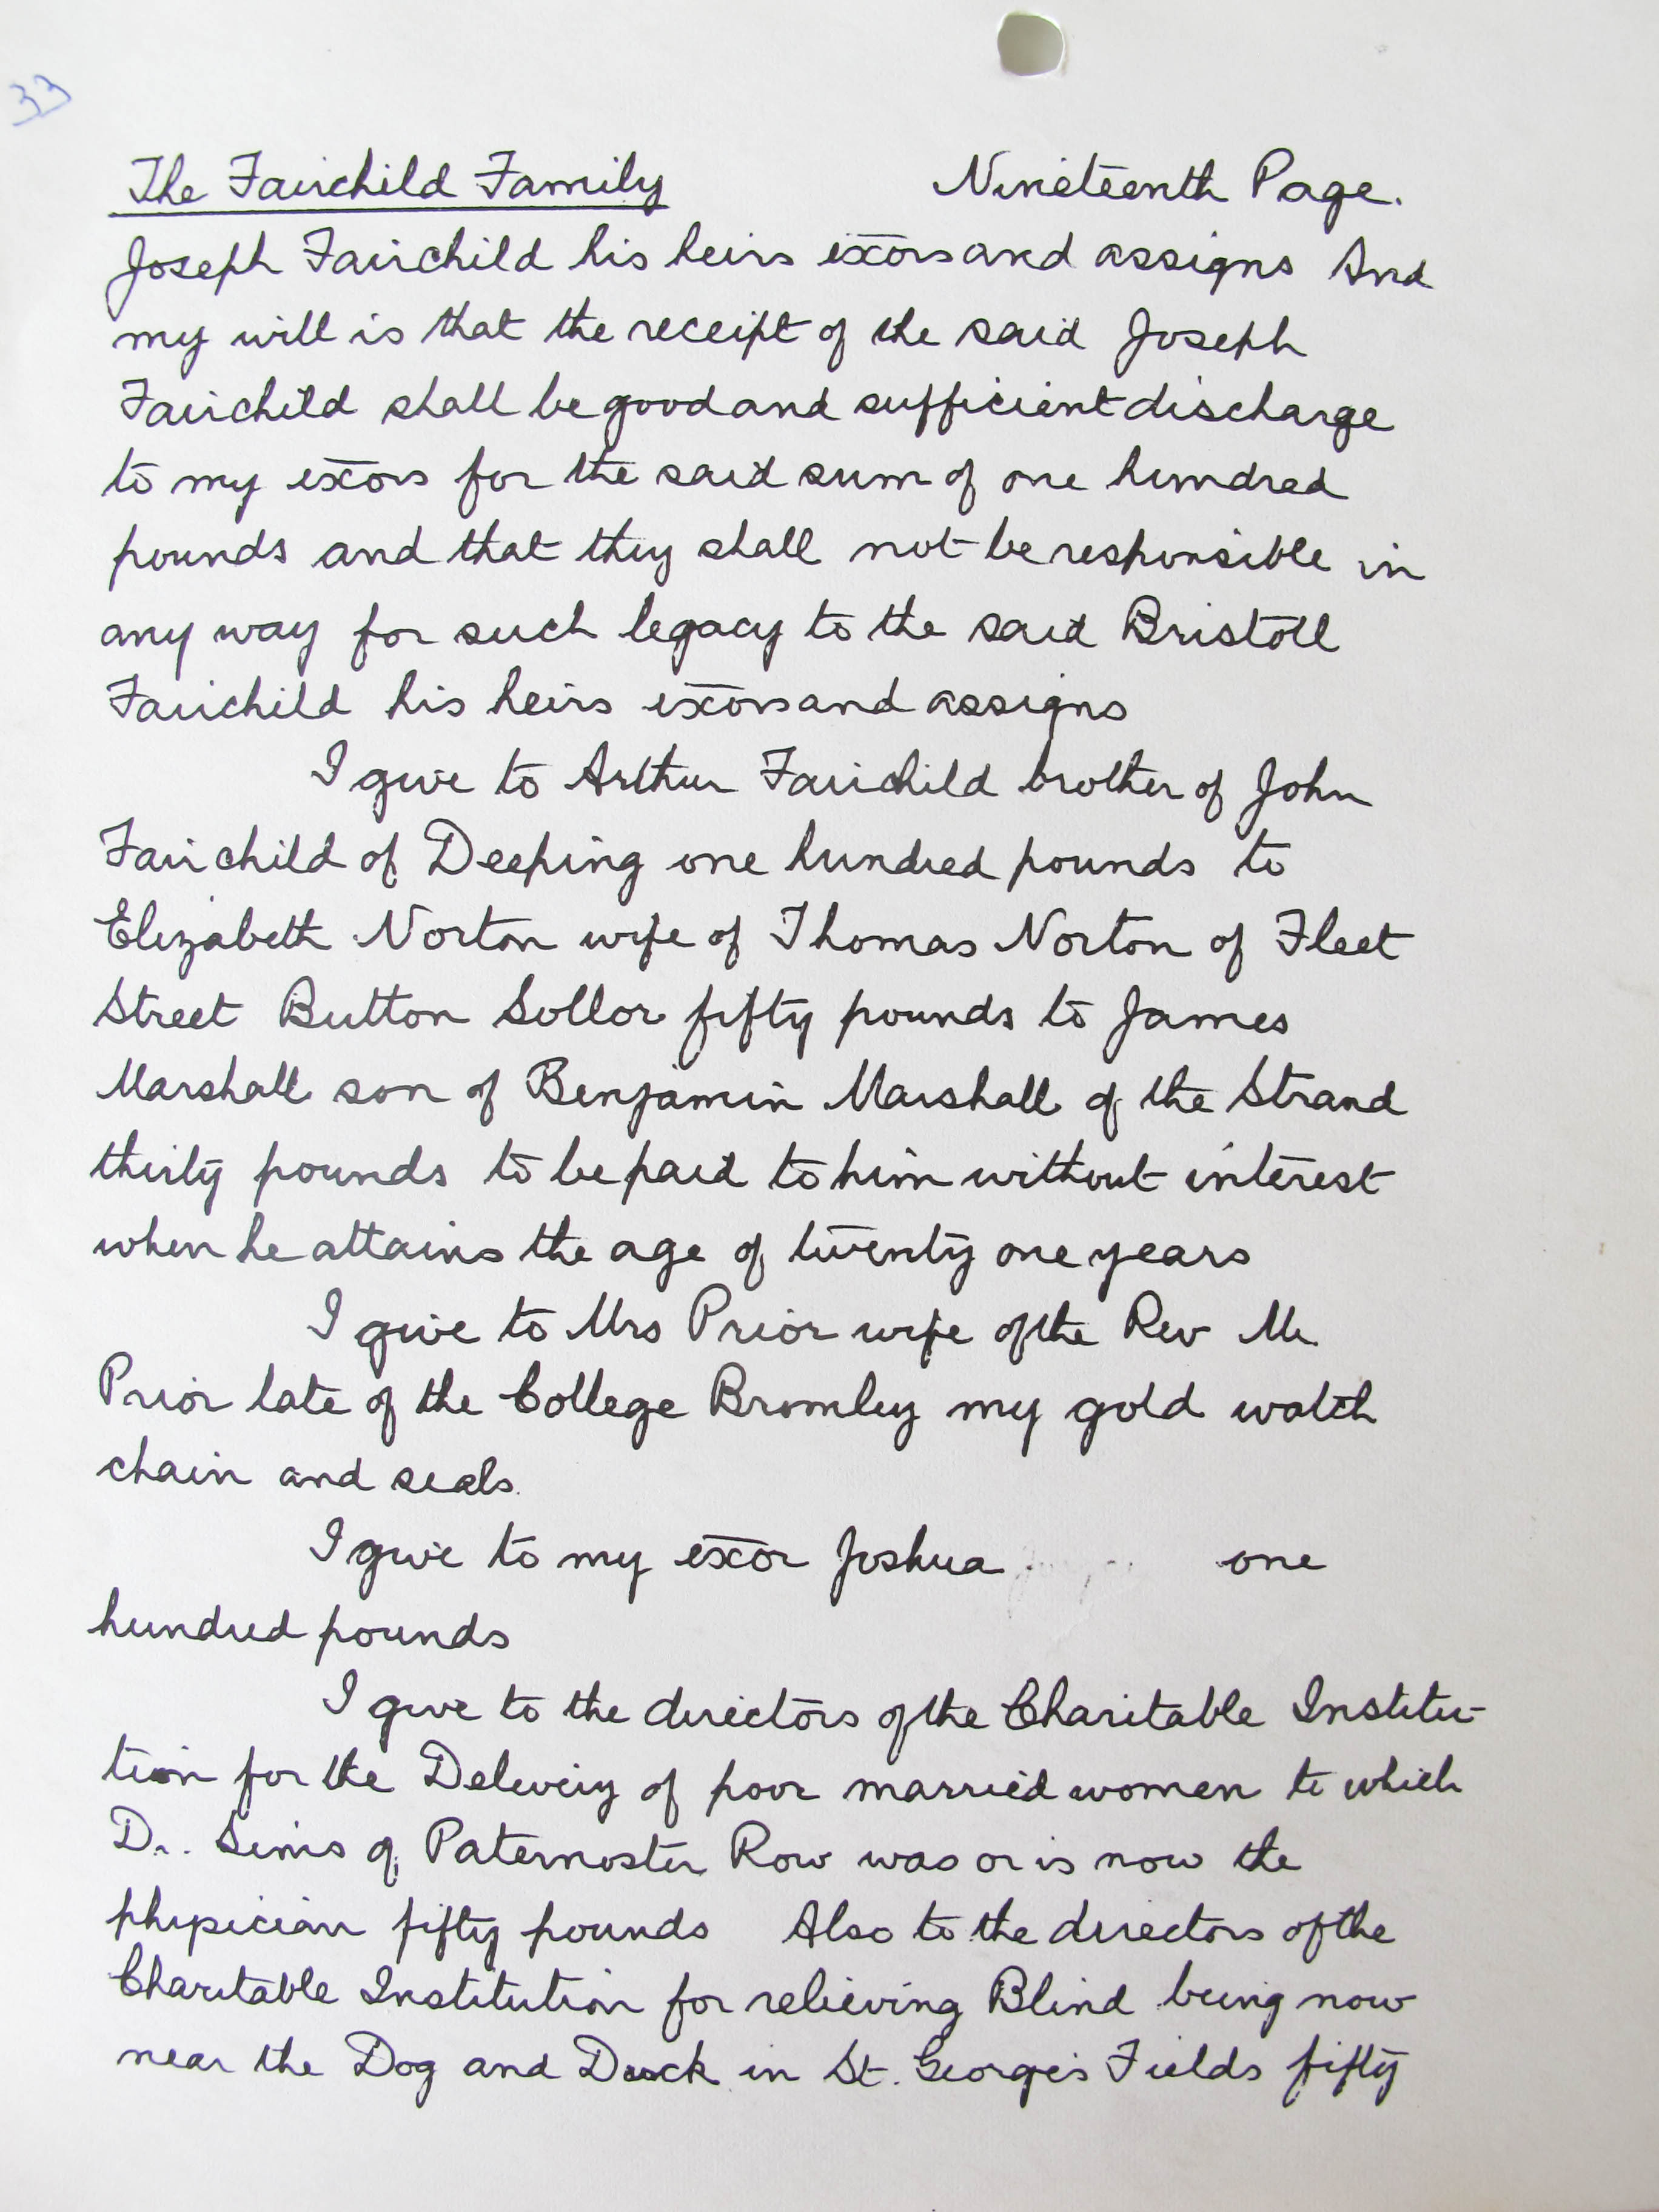 33
The Fairchild Family Nineteenth Page.
Joseph Fairchild his heirs exors and assigns And
my will is that the receipt of the said Joseph
Fairchild shall be good and sufficient discharge
to my exors for the said sum of one hundred
pounds and that they shall not be responsible in
any way for such legacy to the said Bristoll
Fairchild his heirs exors and assigns
I give to Arthur Fairchild brother of John
Fairchild of Deeping one hundred pounds to
Elizabeth Norton wife of Thomas Norton of Fleet
Street Button Sollor fifty pounds to James
Marshall son of Benjamin Marshall of the Strand
thirty pounds to be paid to him without interest
when he attains the age of twenty one years
I give to Mrs Prior wife of the Rev Mr.
Prior late of the College Bromley my gold watch
chain and seals.
I give to my exor Joshua one
hundred pounds
I give to the directors of the Charitable Institu-
tion for the Delivery of poor married women to which
Dr. Sims of Paternoster Row was or is now the
physician fifty pounds Also to the directors of the
Charitable Institution for relieving Blind being now
near the Dog and Duck in St. George's Fields fifty